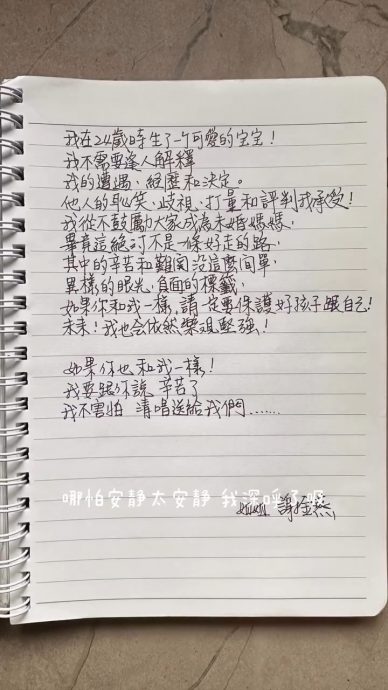 我在24歲時生了一個可愛的宝宝！
我不需要逢人解釋
我的遭遇、經歷和決定。
他人的恥笑、歧視、打量和評判我承受！
我從不鼓勵大家成為未婚媽媽，
畢竟這絕對不是一條好走的路，
其中的辛苦和難関沒這麼間單，
異樣的眼光、負面的標籤，
如果你和我一樣，請一定要保護好孩子跟自己！
未來！我也会依然樂观堅強！
如果你也和我一樣！
我要跟你說 辛苦了
我不害怕 清唱送給我們.......
哪怕安静太安静 我深呼了呀
姐姐 謝